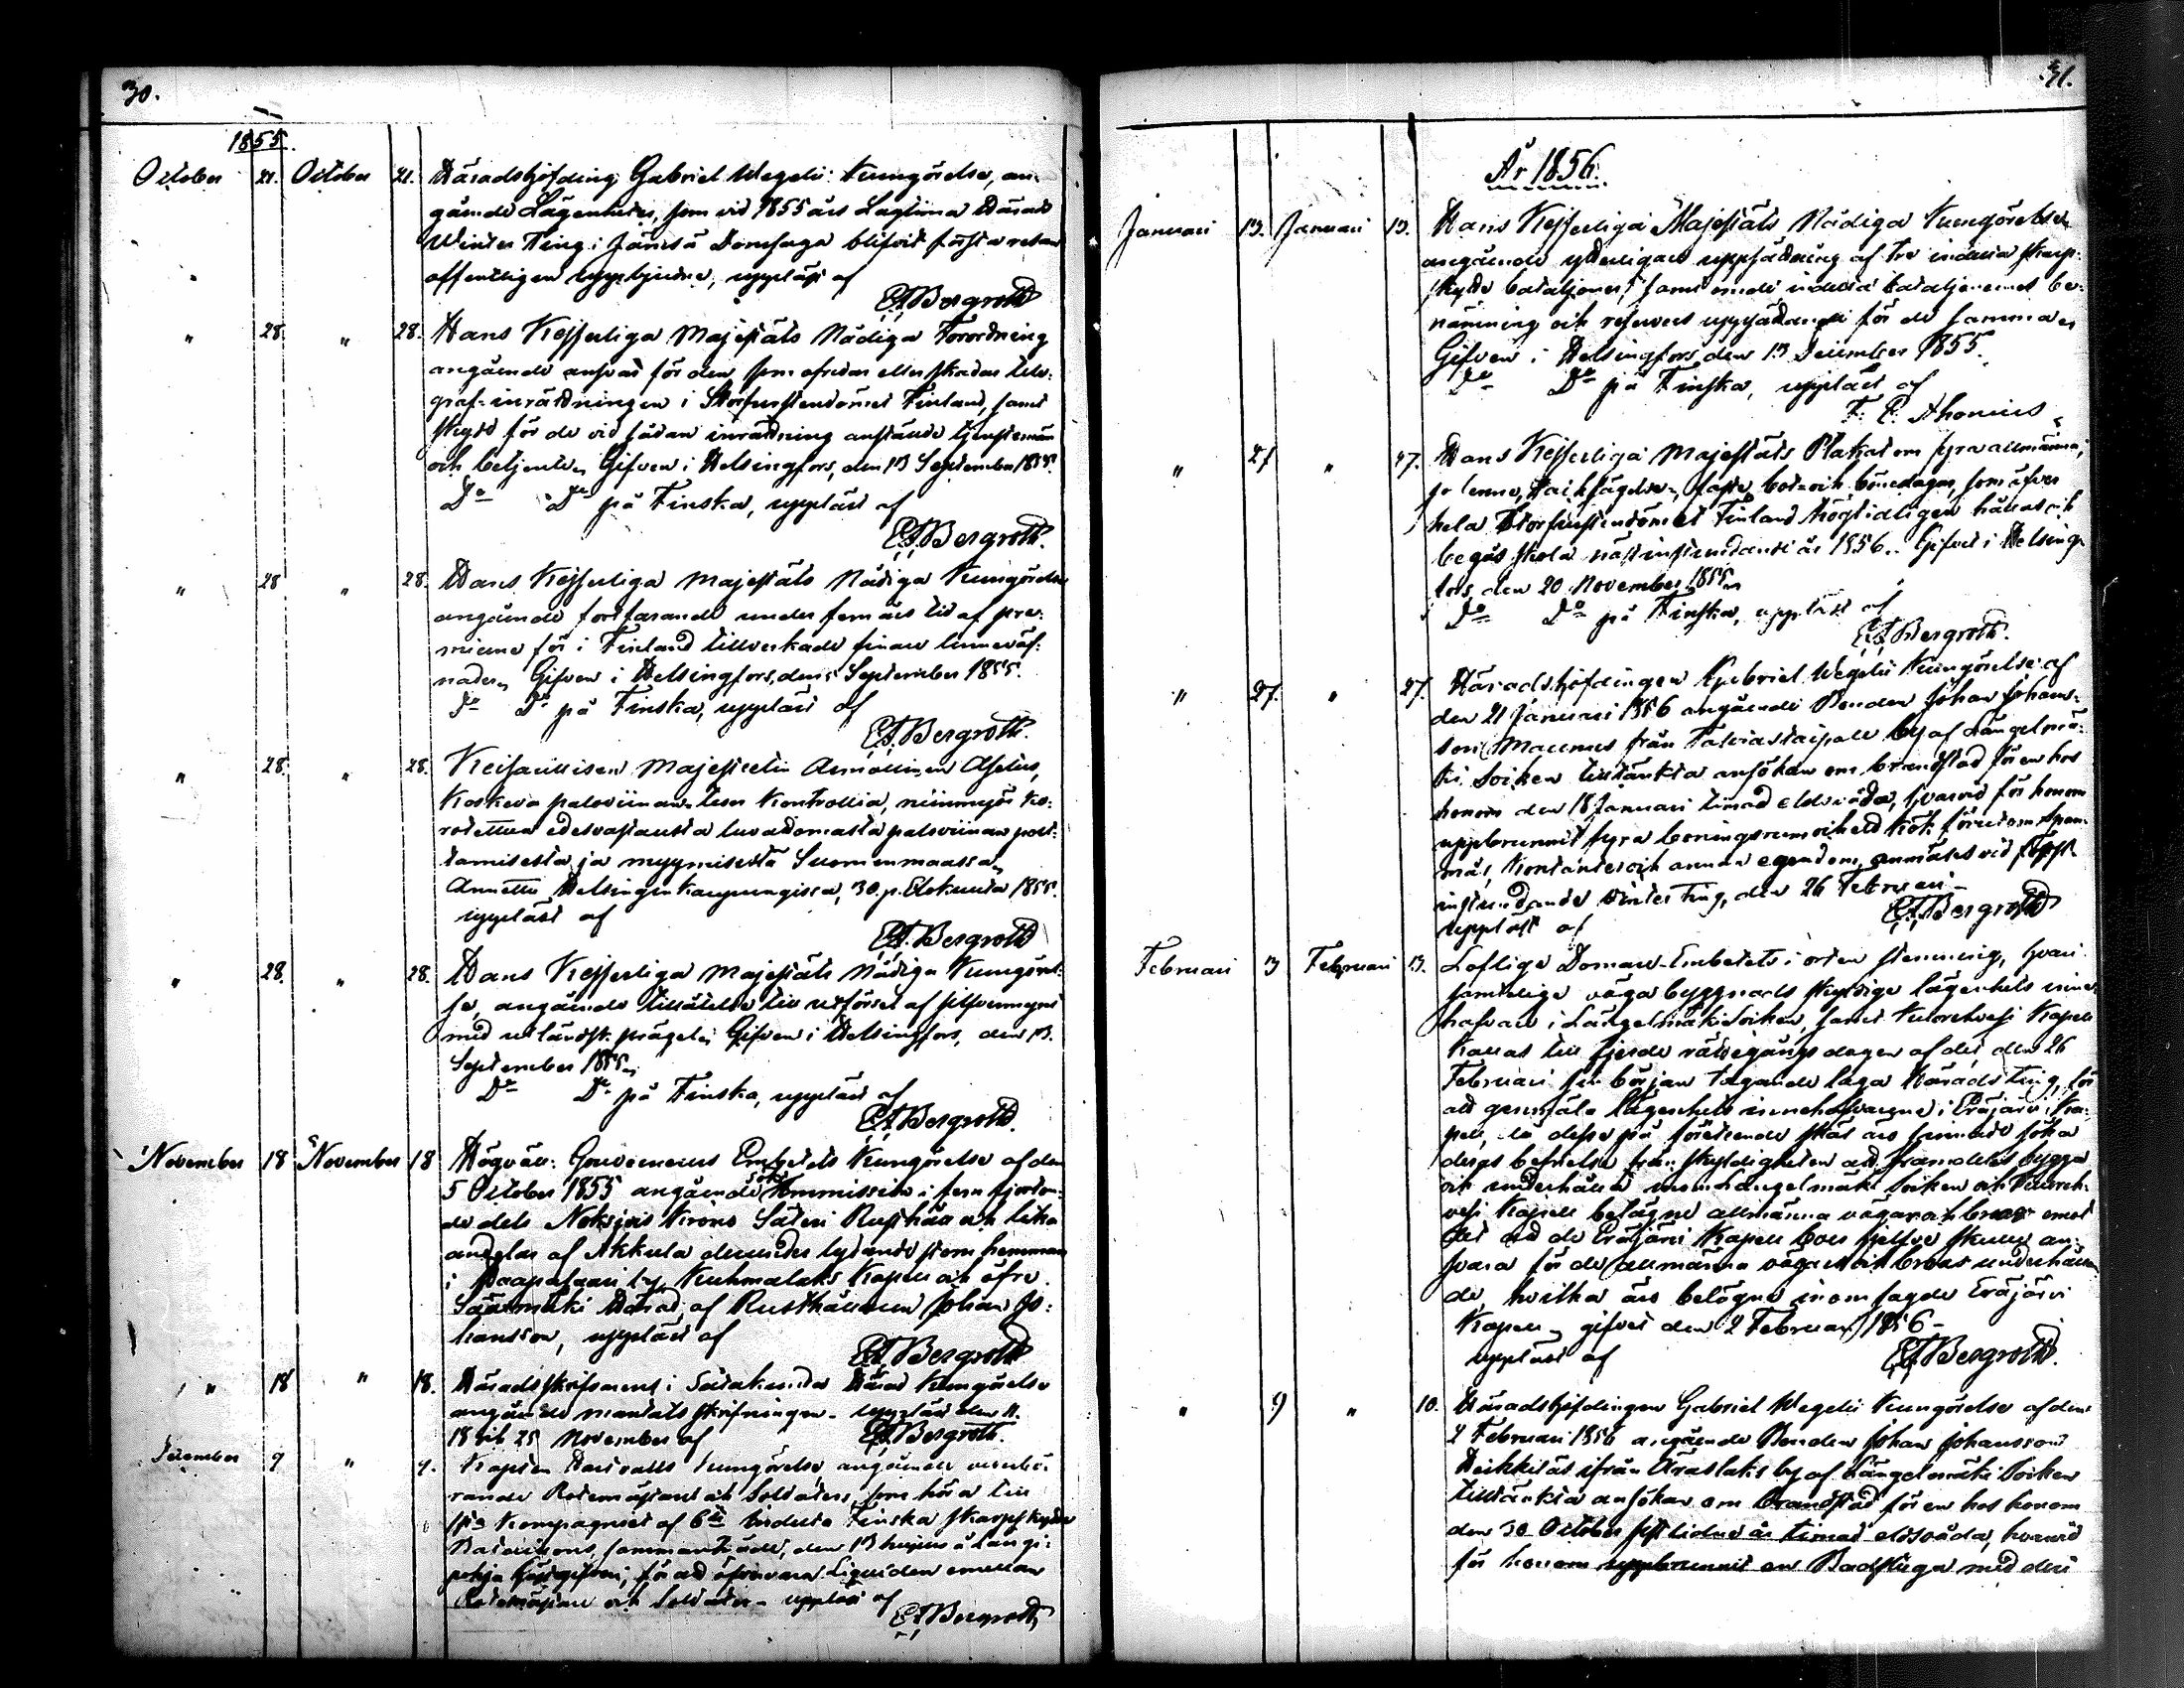 30.
1855.
October 21. October 21. Häradshöfding Gabriel Wegelii Kungörelse, an-
gående Lägenheter, som vid 1855 års Lagtima Härads
Winter Ting i Jämsä Domsaga blifvit första resan
offentligen uppbjudne, uppläst af
E A Bergroth
" 28. " 28. Hans Kejserliga Majestäts Nådiga Förordning
angående ansvar för den som ofredar eller skadar tele-
graf-inrättningen i Storfurstendömet Finland, samt
skydd för de vid sådan inrättning anstälde tjenstemän
och betjente, Gifven i Helsingfors, den 13 September 1855.
Do Do på Finska, uppläst af
E A Bergroth.
" 28 " 28. Hans Kejserliga Majestäts Nådiga Kungörelse
angående fortfarande under fem års tid af pre-
mierne för i Finland tillverkade finare linneväf-
nader, Gifven i Helsingfors, den 5 September 1855.
Do Do på Finska, uppläst af
E A Bergroth.
" 28. " 28. Keisarillisen Majesteetin Armollinen Asetus,
Koskeva paloviinan-teon Kontrollia, niinmyös ko-
rotettua edesvastausta luvattomasta paloviinan polt-
tamisesta ja myymisestä Suomenmaassa,
Annettu Helsingin Kaupungissa, 30. p. Elokuuta 1855.
uppläst af
E A Bergroth
" 28. " 28. Hans Kejserliga Majestäts Nådiga Kungörel-
se, angående tillåtelse till utförsel af silfvermynt
med utländsk prägel, Gifven i Helsingfors, den 13.
September 1855,
Do Do på Finska, uppläst af
E A Bergroth.
November 18 November 18 Högväll: Gouverneurs Embetets Kungörelse af den
5 October 1855 angående Immission i fem fjorton-
de dels Nokijvis Krono Säteri Rusthåll och lika
andelar af Akkula derunder lydande stom hemman
i Haapasaari by, Kuhmalaks Kapell och öfre
Sääxmäki Härad, af Rusthållaren Johan Jo-
hansson, uppläst af
E A Bergroth
" 18 " 18. Häradsskrifvarens i Satakunda Härad Kungörelse
angående mantals skrifningen. Uppläst den 11.
18 och 25 November af E A Bergroth.
December 9 " 9. Kapten kungörelse, angående vederbö-
rande Rotemästare och Soldater, som höra till
Kompagniet af 6te indelta Finska skarpskytte
Bataillons sammanträde, den 13 hujus å Längi-
pohja Gästgifveri, för att öfvervara Liquiden emellan
Rotemästare och Soldater. uppläst af
E A Bergroth
31.
År 1856.
Januari 13. Januari 13. Hans Kejserliga Majestäts Nådiga Kungörelse,
angående ytterligare uppsättning af tre indelta skarp-
skytte bataljoner, samt omde indelta bataljonernes be-
nämning och reservers uppsättande för de samma,
Gifven i Helsingfors, den 13 December 1855.
Do Do på Finska, uppläst af
F. E. Ahonius
" 27 " 27. Hans Kejserliga Majestäts Plakat om fyra allmänna,
solenne, Tacksägelse, faste, bot- och bönedagar, som öfver
hela Storfurstendömet Finland högtidligen hållas och
begås skola nästinstundande år 1856. Gifvet i Helsing-
fors, den 20 November 1855,
Do Do på Finska, uppläst af
E A Bergroth.
" 27. " 27. Häradshöfdingen Gabriel Wegelii Kungörelse af
den 21 Januari 1856 angående Bonden Johan Johans-
son Maunus från Talviastaipale by af Längelmä-
ki Socken tilltänkta ansökan om brandstod för en hos
honom den 18 Januari timad eldsvåda, hvarvid för honom
uppbrunnit fyra boningsrum och ett kök förutom span-
mål, kontanter och annan egendom, anmäles vid först
instundande Vinter Ting, den 26 Februari
uppläst af E A Bergroth
Februari 3 Februari 3. Loflige Domare-Embetets i orten stemning, hvari
samtelige vägabyggnads skyldige lägenhets inne-
hafvare i Längelmäki Socken, samt Kuorehvesi Kapell
kallas till fjerde rättegångsdagen af det, den 26
Februari sin början tagande laga Härads ting, för
att genmäla lägenhets innehafvarne i Eräjärvi Ka-
pell, då desse på förekommande skäl äro sinnade söka
deras befrielse från skyldigheten att framdeles bygga
och underhålla inom Längelmäki Socken och Kuoreh-
vesi Kapell belägne allmänna vägar och broar emot
det att de Eräjärvi Kapell boer sjelfve skulle an-
svara för de allmänna vägars och broars underhållan-
de, hvilka äro belägne inom sagde Eräjärvi
Kapell, gifvet den 2 Februari 1856.
uppläst af E A Bergroth.
" 9 " 10. Häradshöfdingen Gabriel Wegelii Kungörelse af den
2 Februari 1856 angående Bonden Johan Johansson
Heikkilä ifrån Attaslaks by af Längelmäki Socken
tilltänkta ansökan om brandstod för en hos honom
den 30 October sistlidne år timad eldsvåda, hvarvid
för honom uppbrunnit en Badstuga med deri